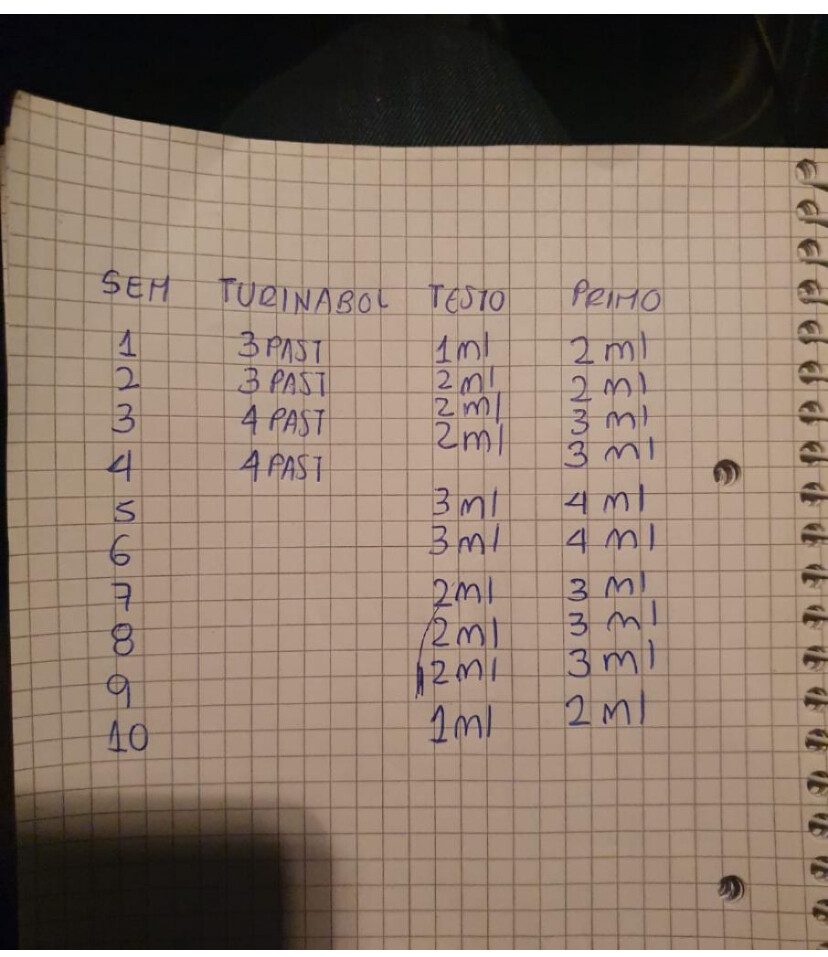 SEM TURINABOL TESTO PRIMO
1 3 PAST 1 ml 2 ml
2 3 PAST 2 ml 2 ml
3 4 PAST 2 ml 3 ml
4 4 PAST 2 ml 3 ml
5 3 ml 4 ml
6 3 ml 4 ml
7 2 ml 3 ml
8 2 ml 3 ml
9 2 ml 3 ml
10 1 ml 2 ml